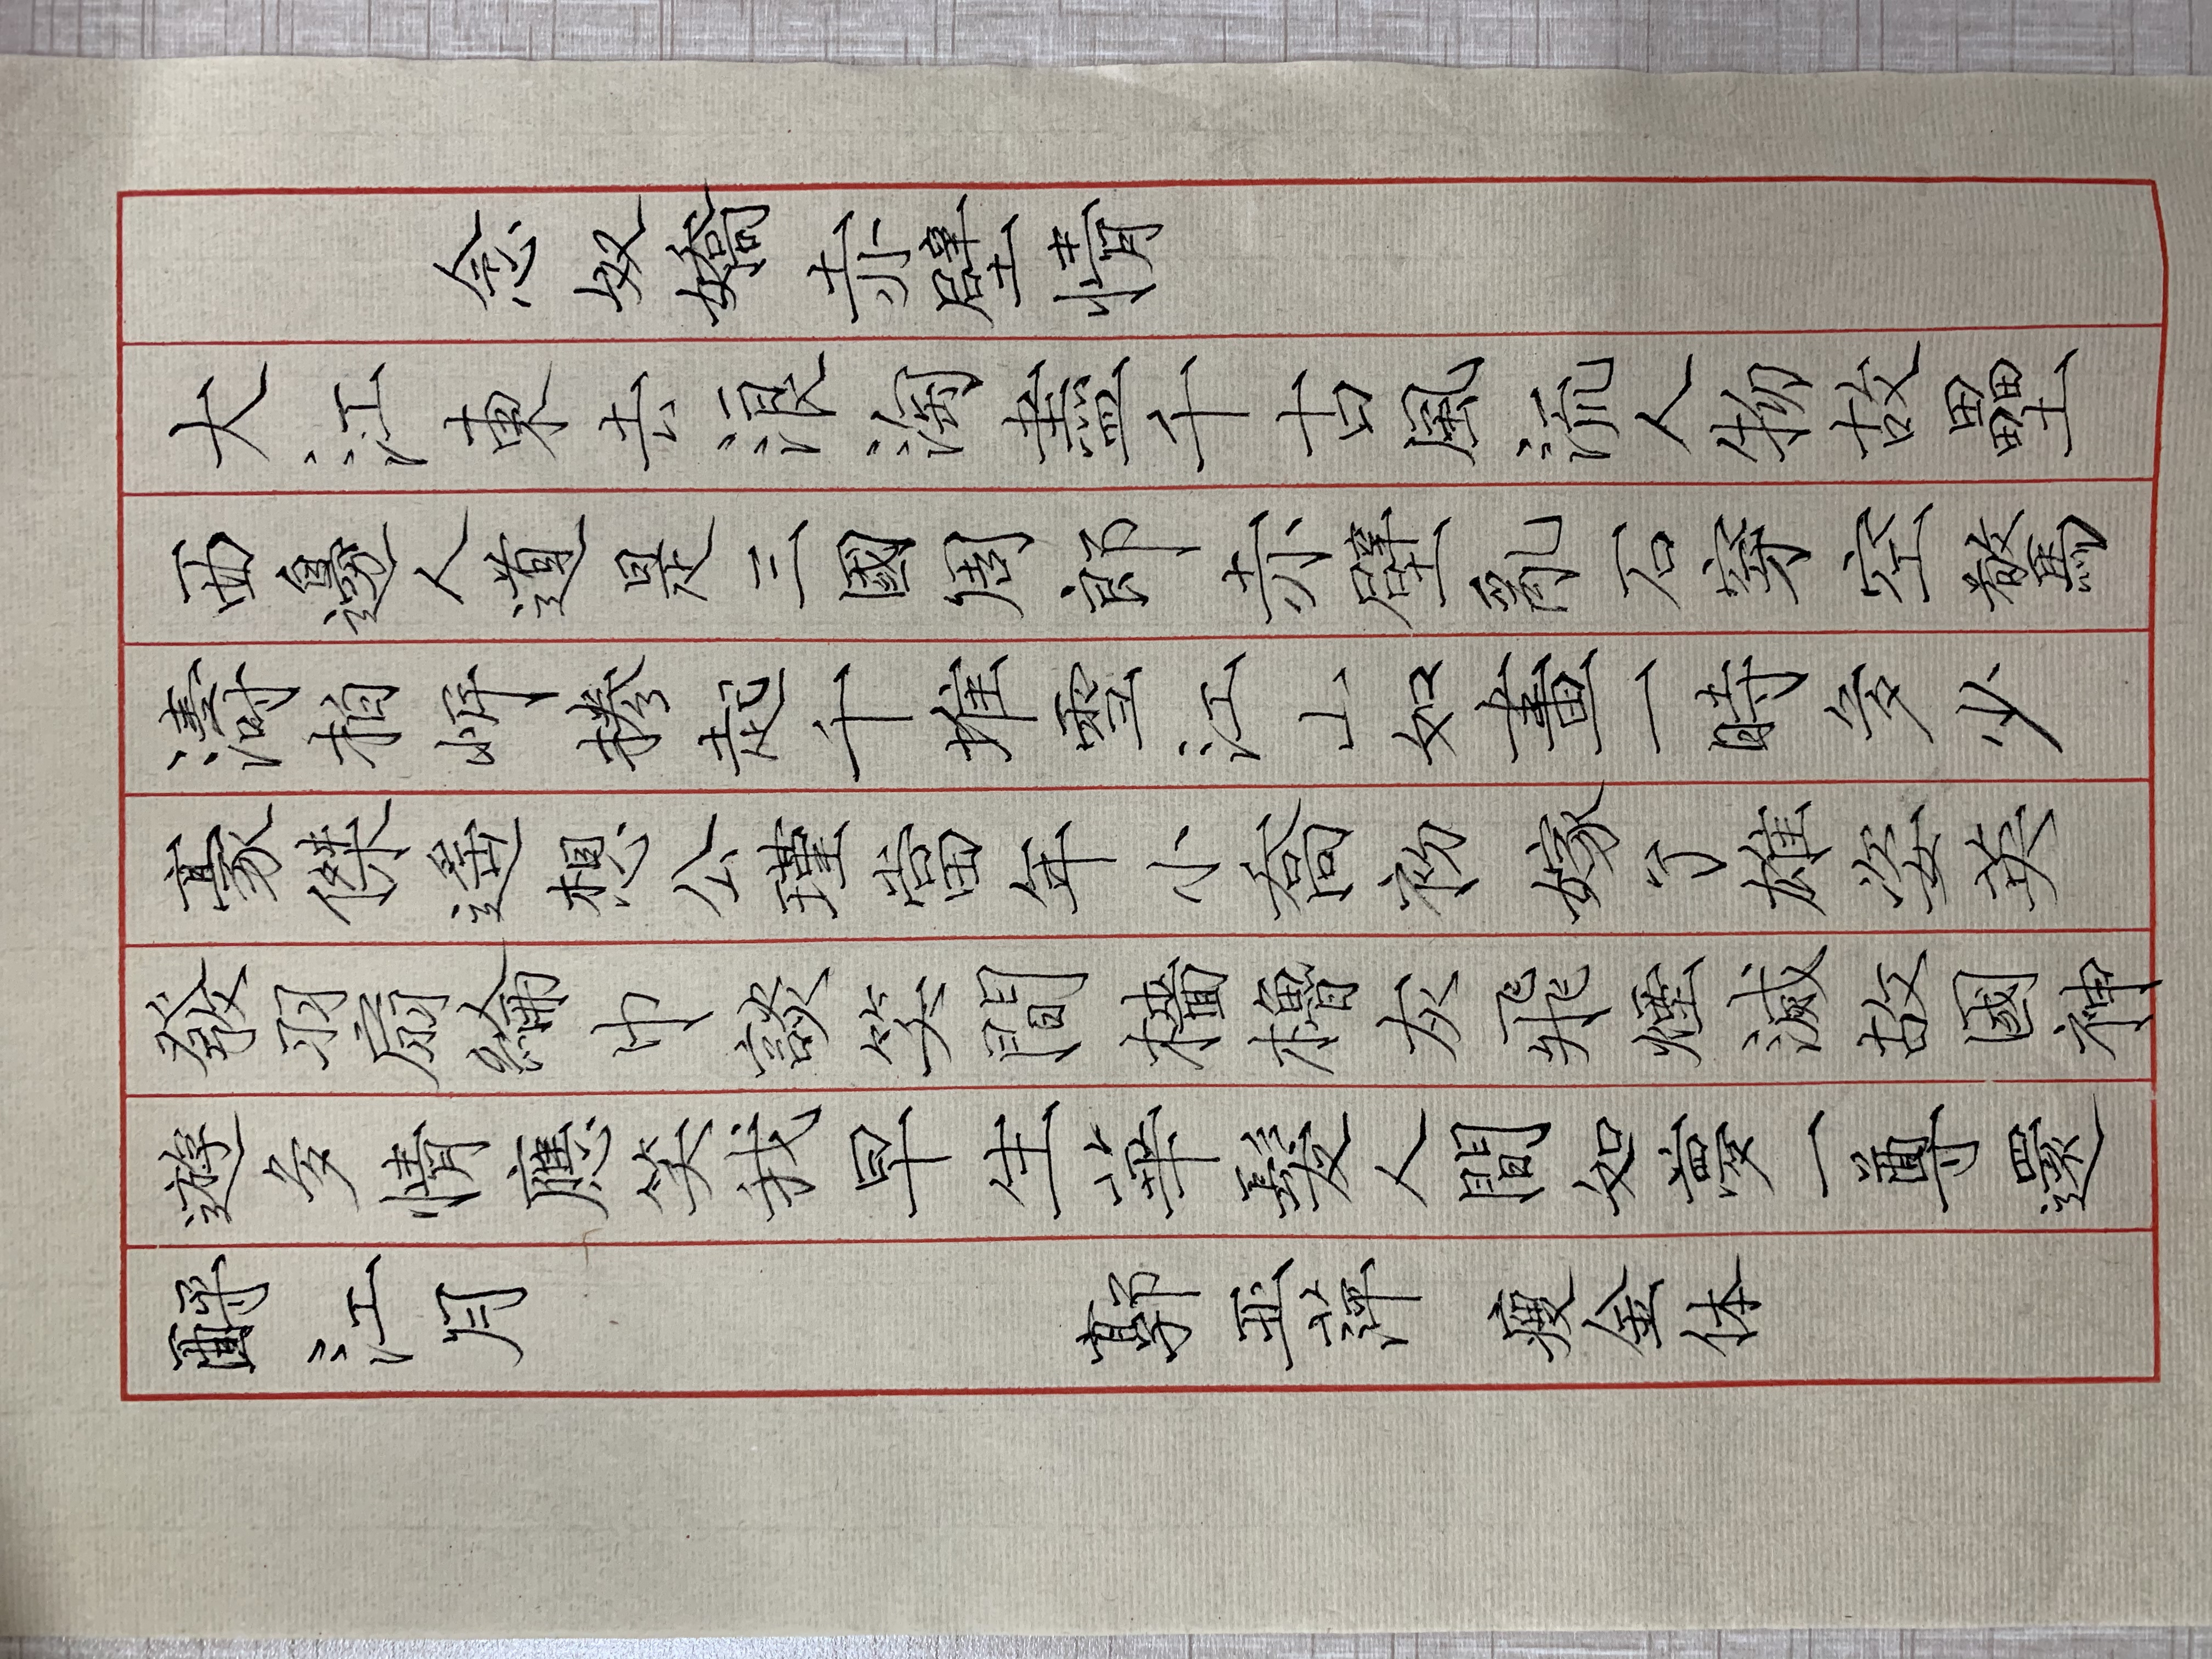 念奴嬌 赤壁情
大江東去浪淘盡千古風流人物故壘
西邊人道是三國周郎赤壁亂石穿空驚
濤拍岸捲起千堆雪江山如畫一時多少
豪傑遙想公瑾當年小喬初嫁了雄姿英
發羽扇綸巾談笑間檣櫓灰飛煙滅故國神
遊多情應笑我早生華髮人間如夢一尊還
酹江月 郭亞萍 瘦金体